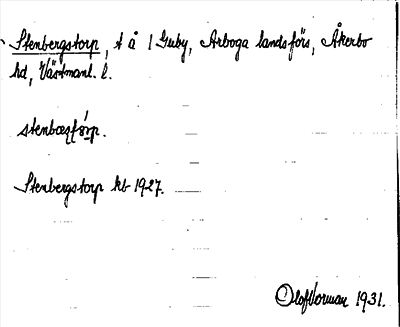 Stenbergstorp, t å 1 Guby, Arboga landsförs, Åkerbo
hd, Västmanl. l.
Stenbergstorp kb 1927.
Olof Norman 1931.